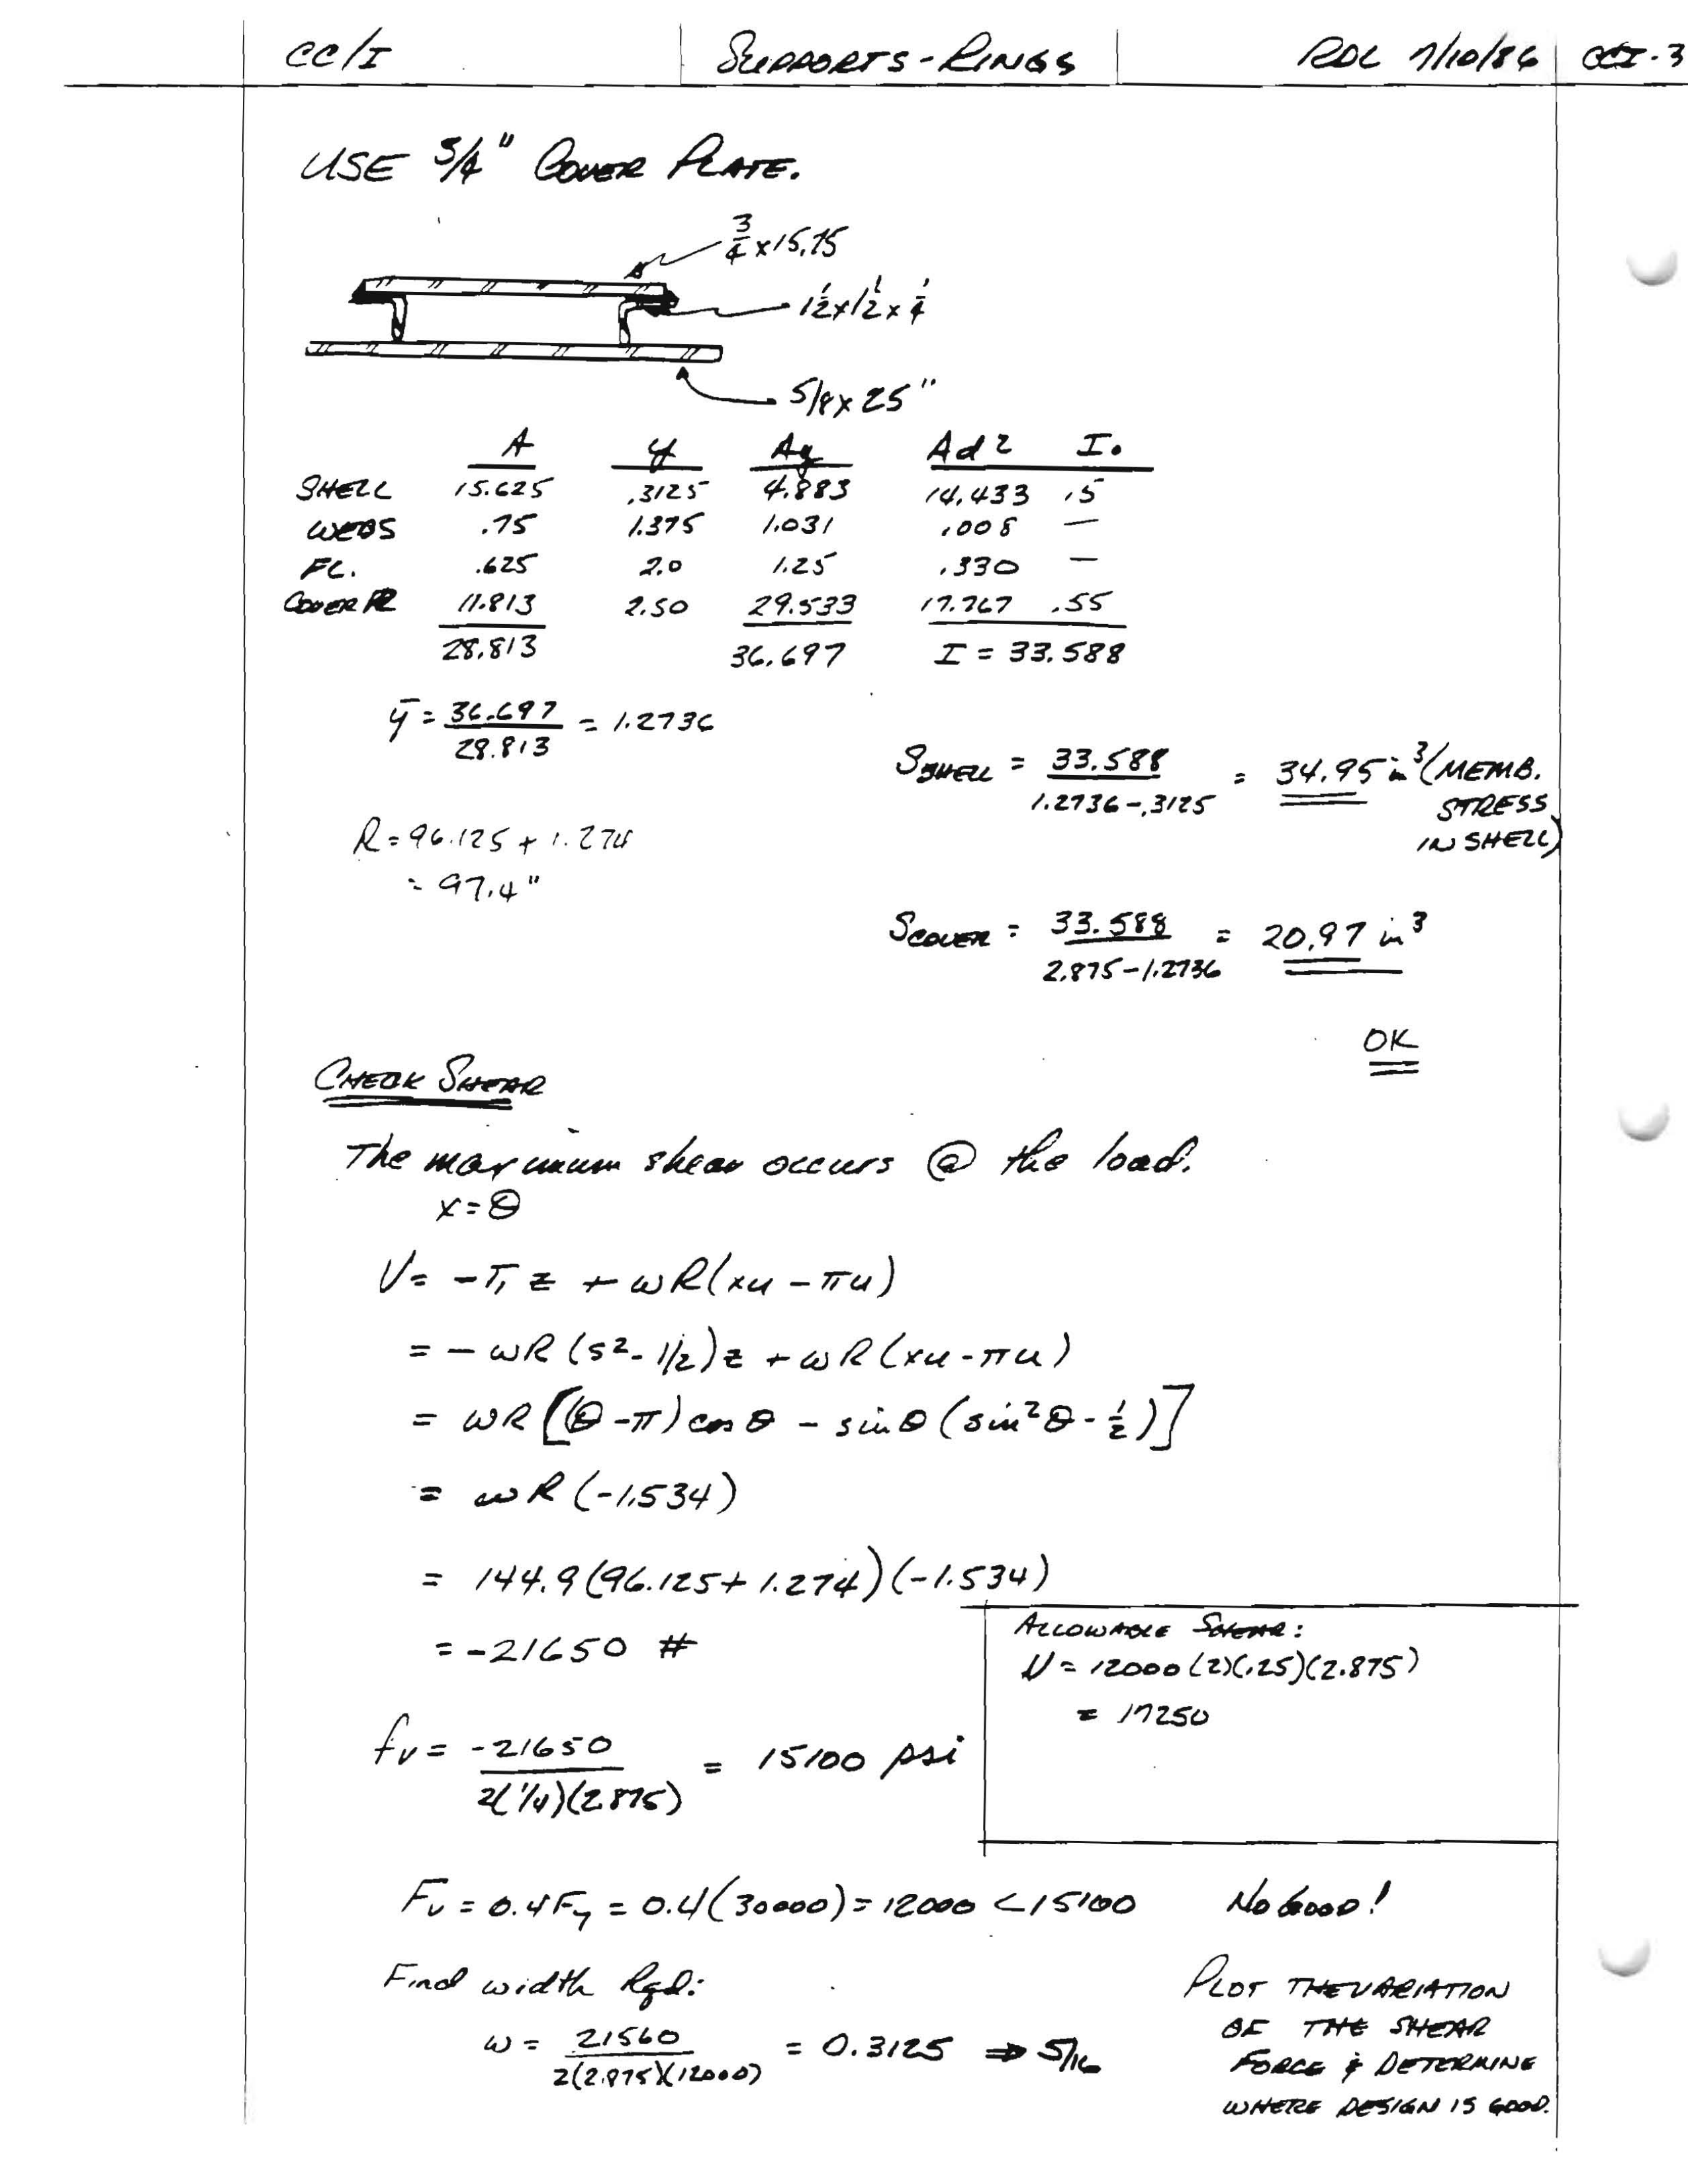 CC/I SUPPORTS-RINGS RDL 7/10/86 CCI-3
USE 3/4" COVER PLATE.
3/4 x 15.75
1 1/2 x 1 1/2 x 1/4
5/8 x 25"
A y Ay Ad2 Io
SHELL 15.625 .3125 4.883 14.433 .5
WEBS .75 1.375 1.031 .008 —
FL. .625 2.0 1.25 .330 —
COVER PL 11.813 2.50 29.533 17.767 .55
28.813 36.697 I = 33.588
ȳ = 36.697 / 28.813 = 1.2736
S SHELL = 33.588 / 1.2736-.3125 = 34.95 in³ (MEMB.
STRESS
IN SHELL)
R = 96.125 + 1.274
= 97.4"
S COVER = 33.588 / 2.875-1.2736 = 20.97 in³
OK
CHECK SHEAR
The maximum shear occurs @ the load.
x = θ
V = -T₁ z + wR(xu - πu)
= - wR (s² - 1/2)z + wR(xu - πu)
= wR [(θ-π) cos θ - sin θ (sin²θ - 1/2)]
= wR (-1.534)
= 144.9 (96.125 + 1.274)(-1.534)
= -21650 #
ALLOWABLE SHEAR:
V = 12000 (2)(.25)(2.875)
= 17250
fv = -21650 / 2(1/4)(2.875) = 15100 psi
Fv = 0.4Fy = 0.4(30000) = 12000 < 15100 NO GOOD!
Find width Rqd:
w = 21560 / 2(2.875)(12000) = 0.3125 ⇒ 5/16
PLOT THE VARIATION
OF THE SHEAR
FORCE & DETERMINE
WHERE DESIGN IS GOOD.